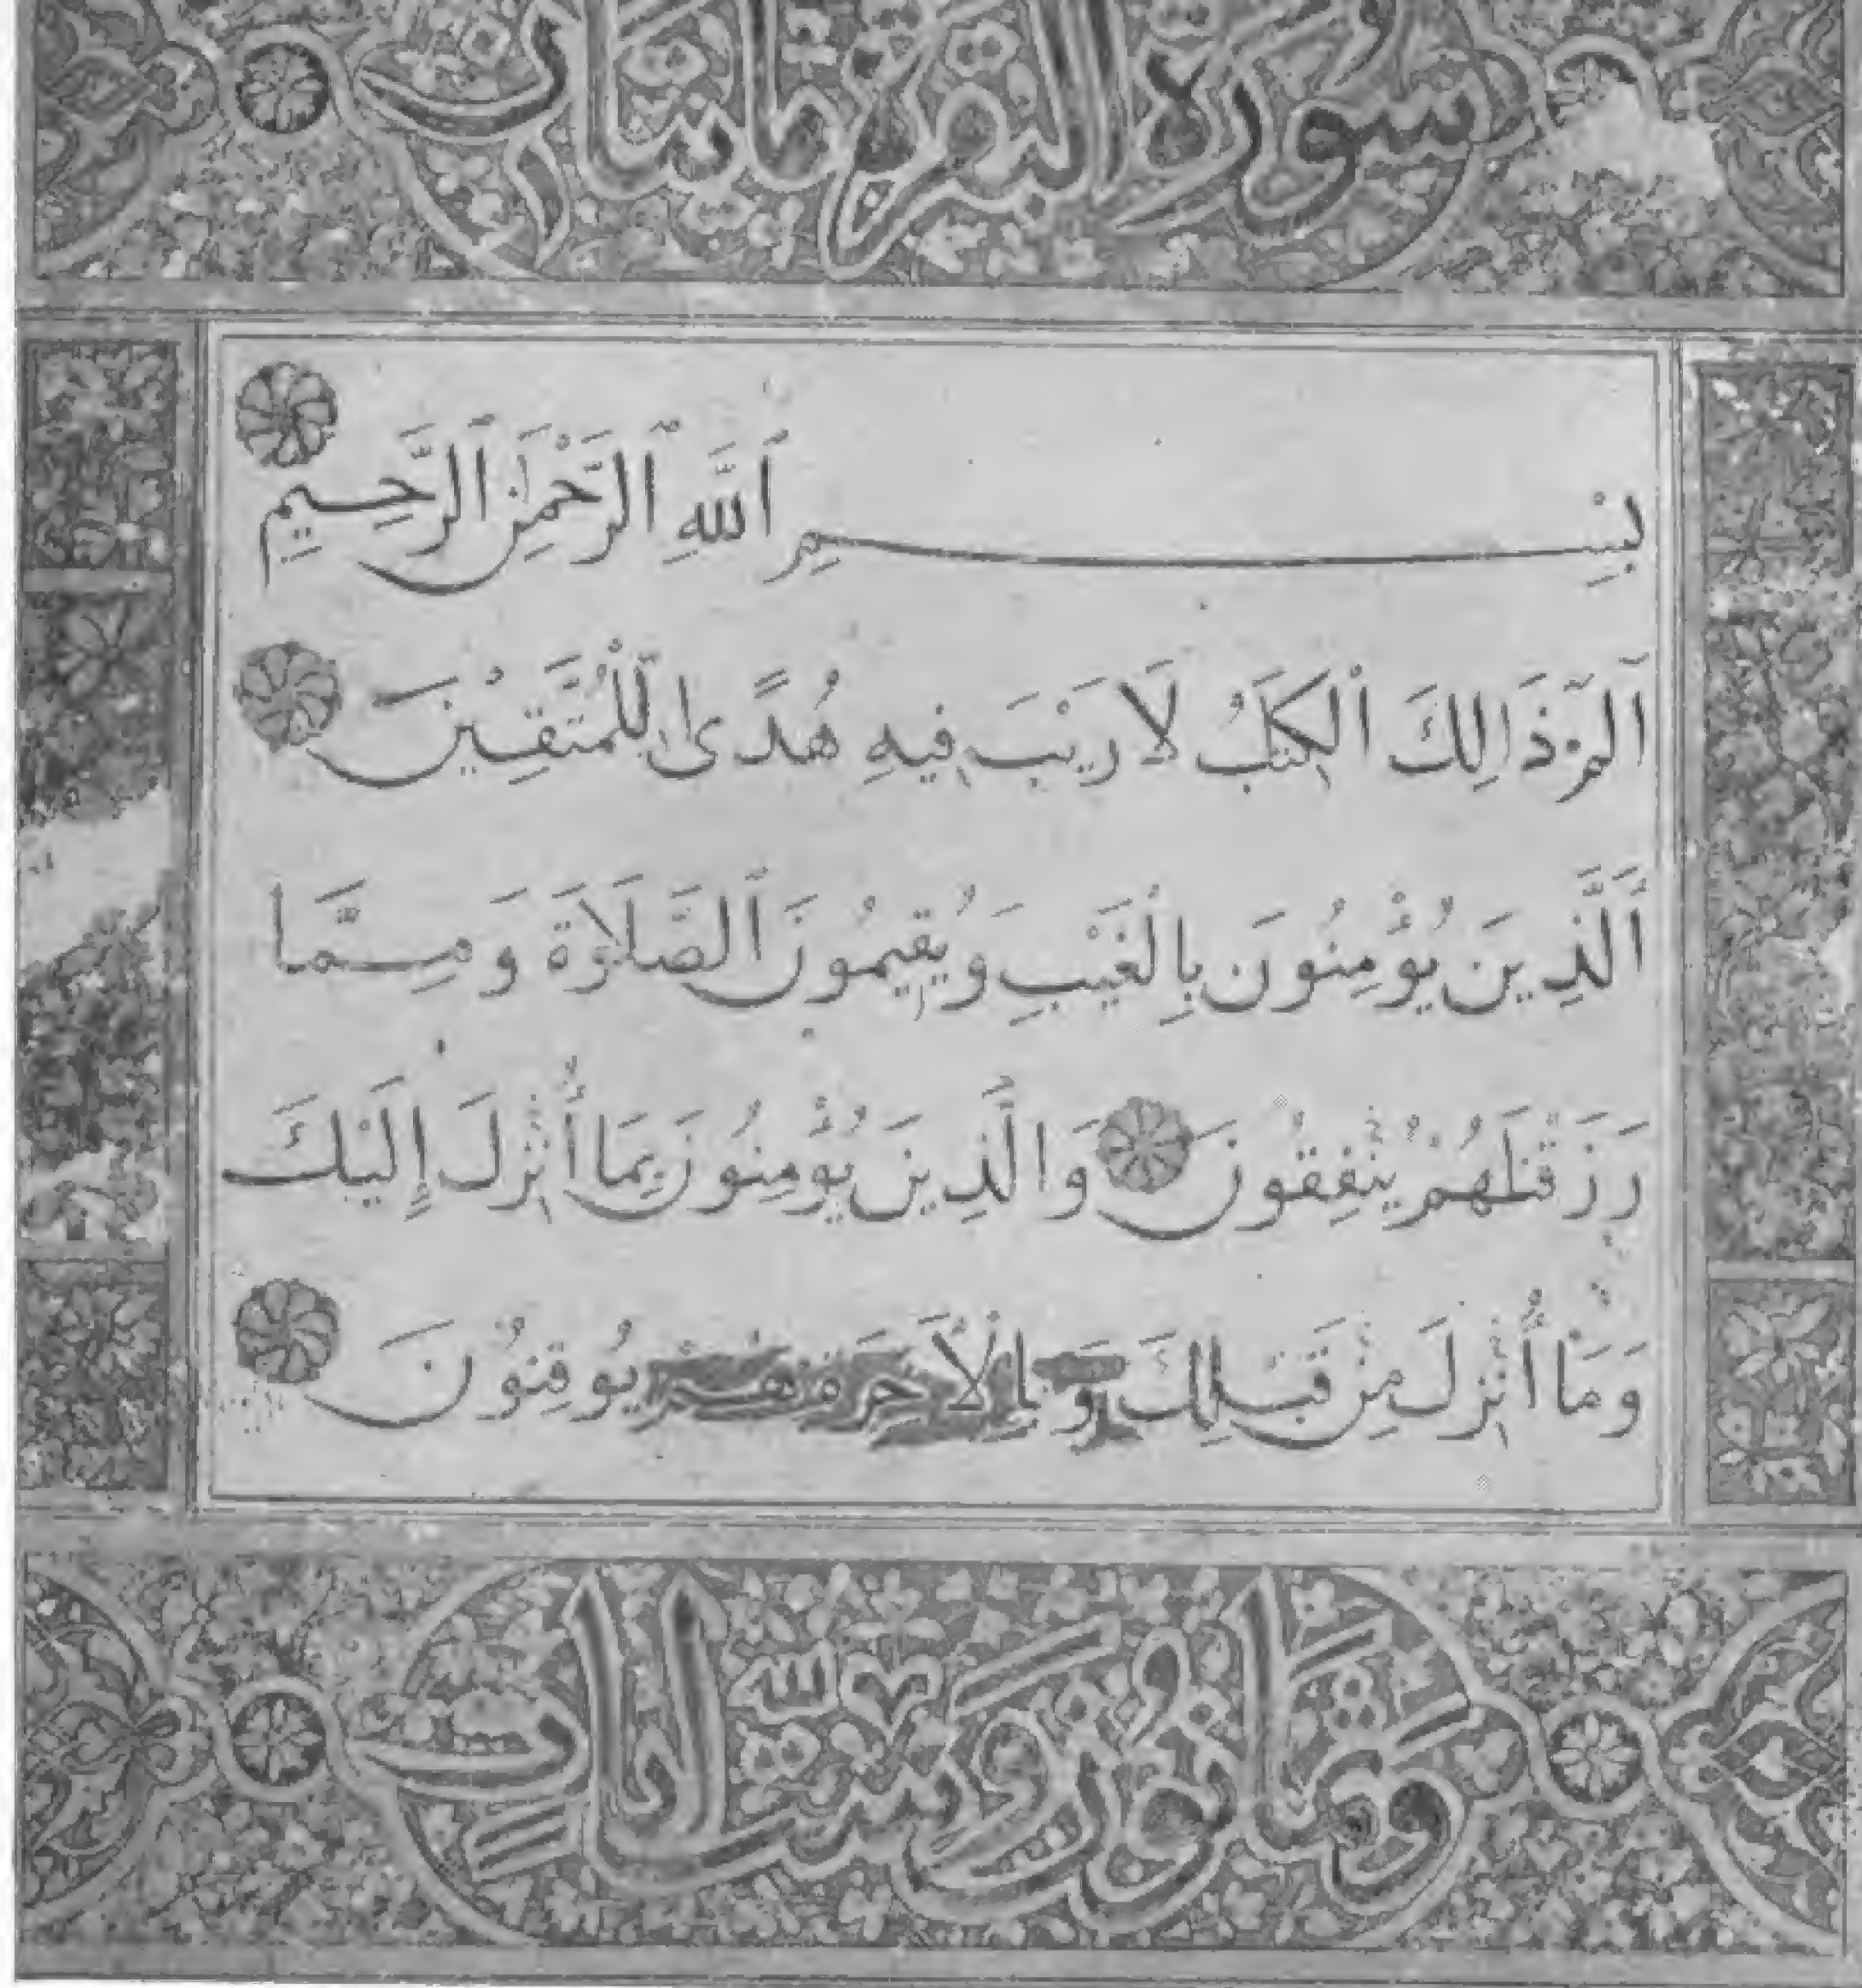 سورة البقرة مائتان
بِسْمِ ٱللَّهِ ٱلرَّحْمَٰنِ ٱلرَّحِيمِ
الٓمٓ ذَالِكَ ٱلْكِتَٰبُ لَا رَيْبَ فِيهِ هُدًى لِلْمُتَّقِينَ
ٱلَّذِينَ يُؤْمِنُونَ بِالْغَيْبِ وَيُقِيمُونَ ٱلصَّلَاوٰةَ وَمِمَّا
رَزَقْنَٰهُمْ يُنْفِقُونَ وَالَّذِينَ يُؤْمِنُونَ بِمَا أُنْزِلَ إِلَيْكَ
وَمَا أُنْزِلَ مِنْ قَبْلِكَ وَبِالْأَخِرَةِ هُمْ يُوقِنُونَ
وثمانون وست ايات